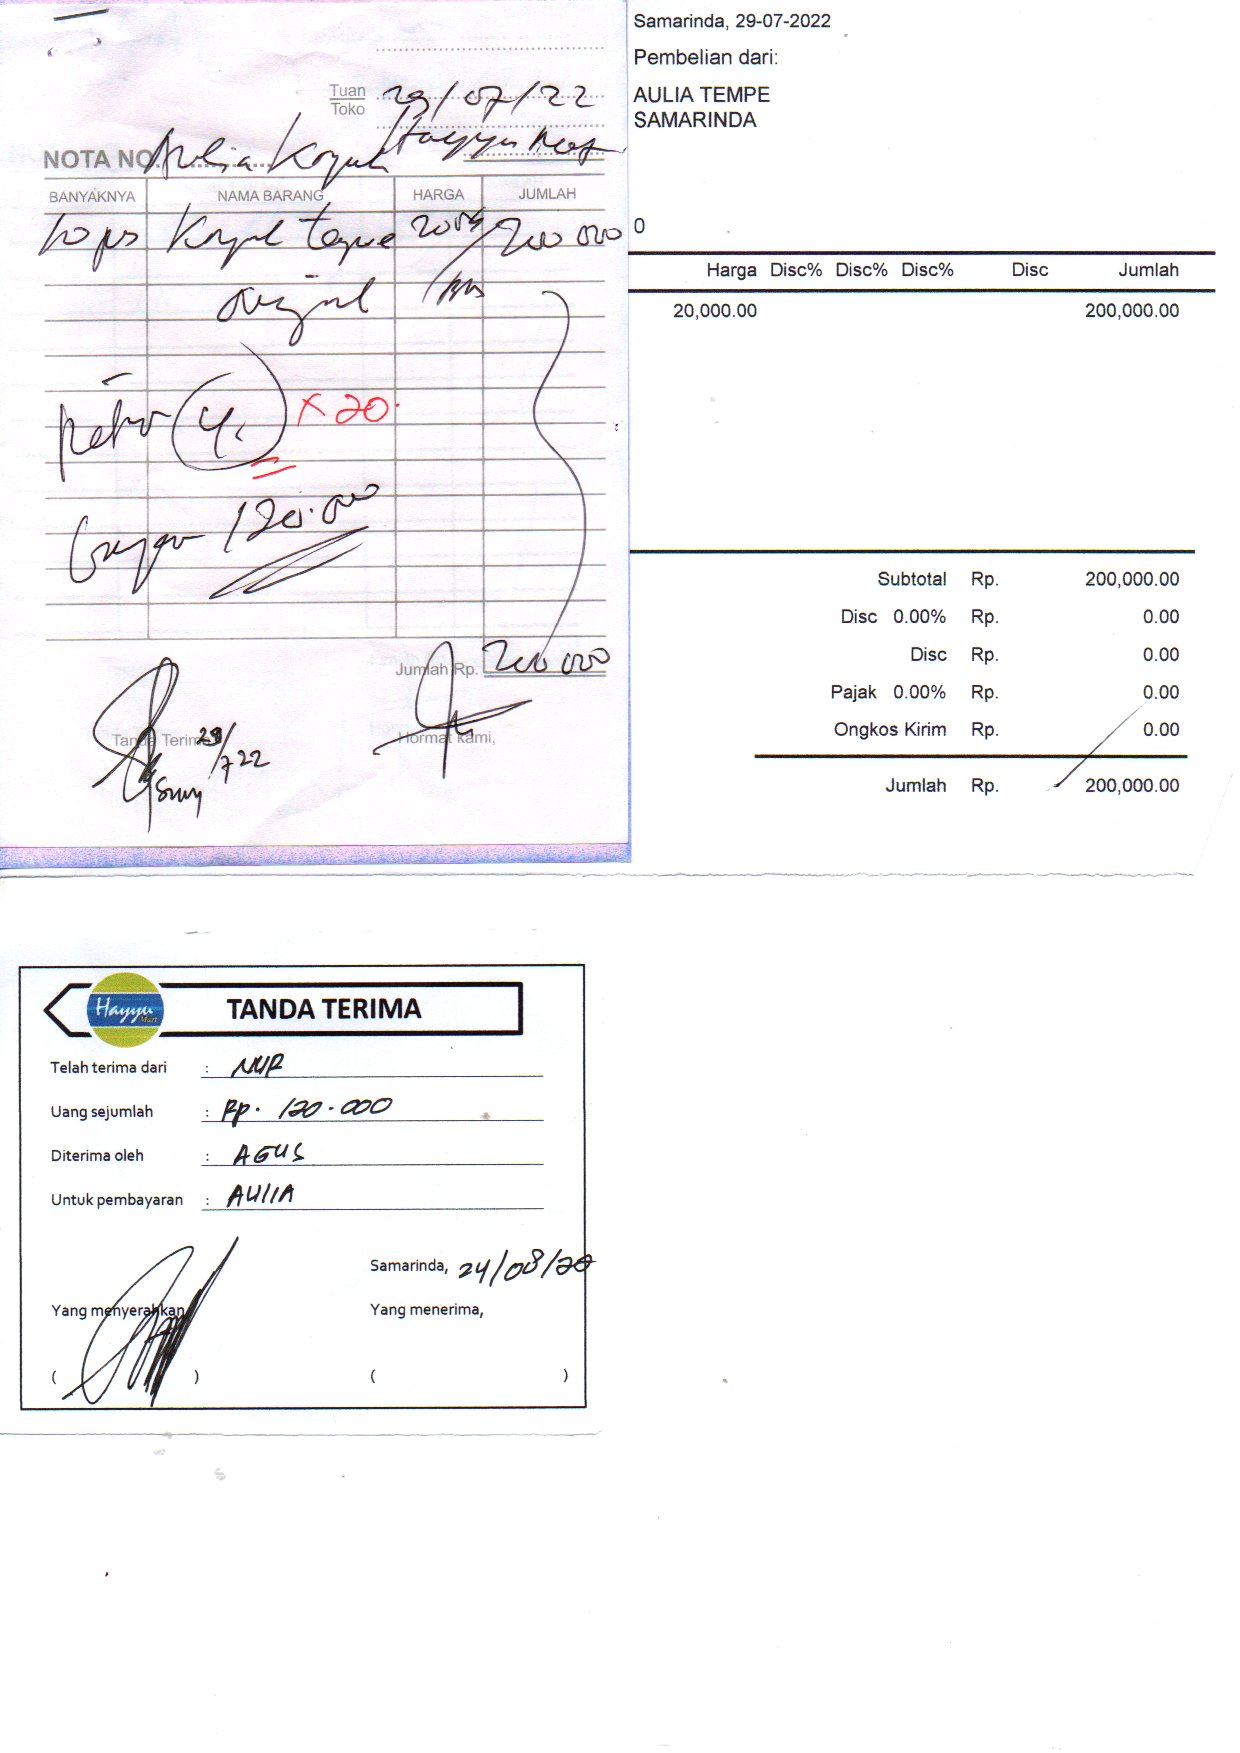 Tuan
Toko
29/07/22
Hayyu Mart
NOTA NO.
Aulia
BANYAKNYA NAMA BARANG HARGA JUMLAH
10 pcs tempe 200 000
4
x 20
120.000
Jumlah Rp. 200 000
Tanda Terima
29/7 22
Hormat kami,
Samarinda, 29-07-2022
Pembelian dari:
AULIA TEMPE
SAMARINDA
0
Harga Disc% Disc% Disc% Disc Jumlah
20,000.00 200,000.00
Subtotal Rp. 200,000.00
Disc 0.00% Rp. 0.00
Disc Rp. 0.00
Pajak 0.00% Rp. 0.00
Ongkos Kirim Rp. 0.00
Jumlah Rp. 200,000.00
Hayyu Mart
TANDA TERIMA
Telah terima dari : NUR
Uang sejumlah : Rp. 120.000
Diterima oleh : AGUS
Untuk pembayaran : AULIA
Samarinda, 24/08/22
Yang menyerahkan
Yang menerima,
( )
( )